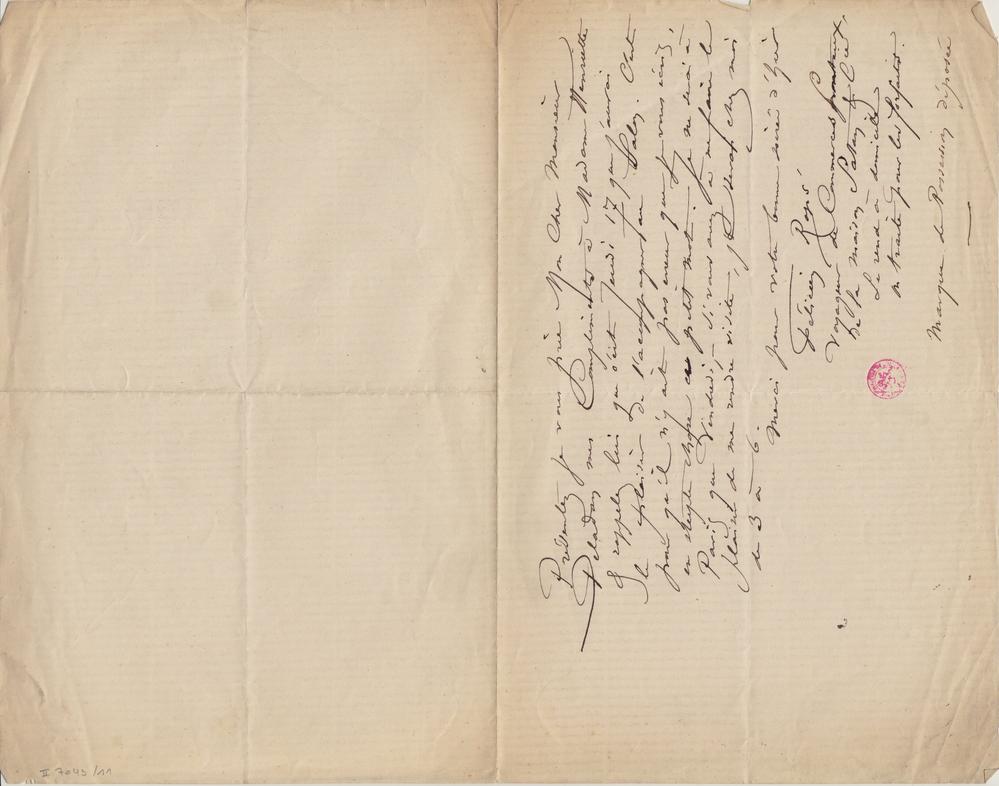 Présentez je vous prie Mon Cher Monsieur
Peladan mes Compliments à Madame Henriette
& rappelez lui que c'est Jeudi 17 que j'aurai
le plaisir de l'accompagner au Salon. C'est
pour qu'il n'y ait pas erreur que je vous écris,
en chaque chose ce petit mot. Je ne serai à
Paris que Vendredi, si vous avez à me faire le
plaisir de me rendre visite, je serai chez moi
de 3 à 6.
Merci pour votre bonne soirée d'hier
Félicien Rops
Voyageur de Commerce
De la maison Satan & Cie
Se rend à domicile
on traite pour les forfaits.
Marque de Possession déposée
II 7043/11